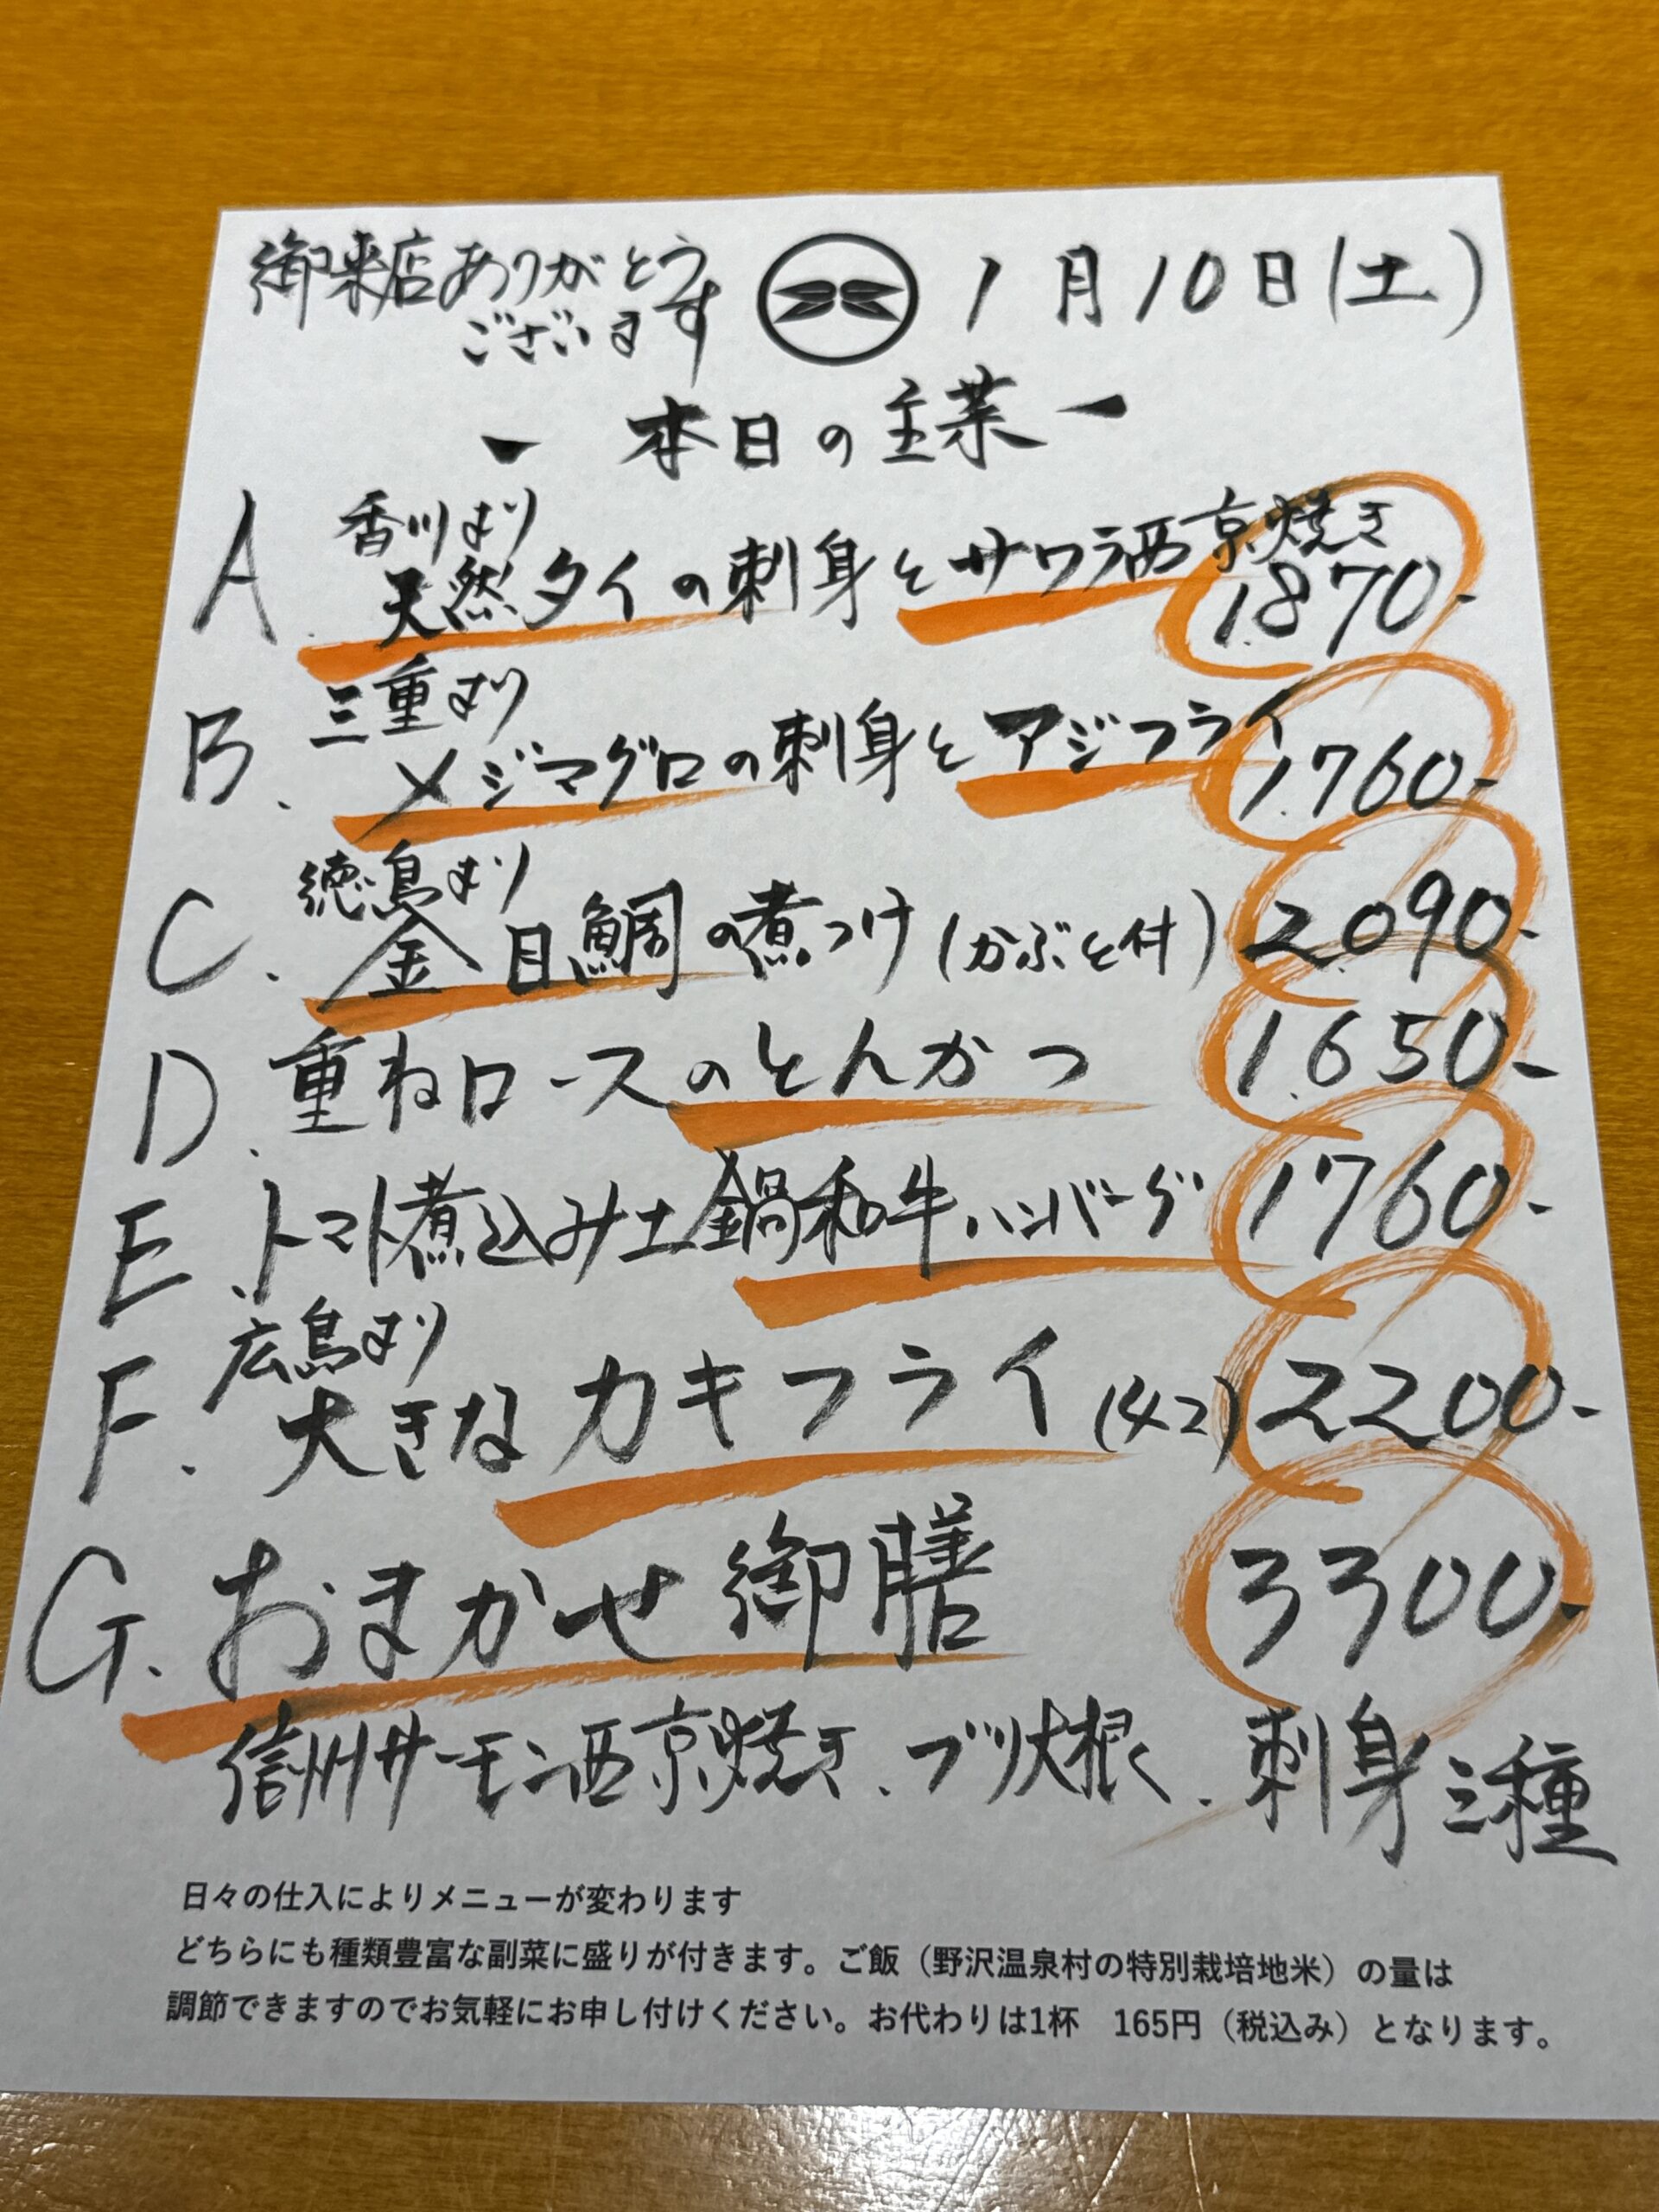 御来店ありがとう
ございます
1月10日(土)
- 本日の主菜 -
香川より
A. 天然タイの刺身とサワラ西京焼き 1.870-
三重より
B. メジマグロの刺身とアジフライ 1.760-
徳島より
C. 金目鯛の煮つけ(かぶと付) 2.090-
D. 重ねロースのとんかつ 1.650-
E. トマト煮込み土鍋和牛ハンバーグ 1760-
広島より
F. 大きなカキフライ(4コ) 2200-
G. おまかせ御膳 3300-
信州サーモン西京焼き、ブリ大根、刺身三種
日々の仕入によりメニューが変わります
どちらにも種類豊富な副菜に盛りが付きます。ご飯（野沢温泉村の特別栽培地米）の量は
調節できますのでお気軽にお申し付けください。お代わりは1杯　165円（税込み）となります。